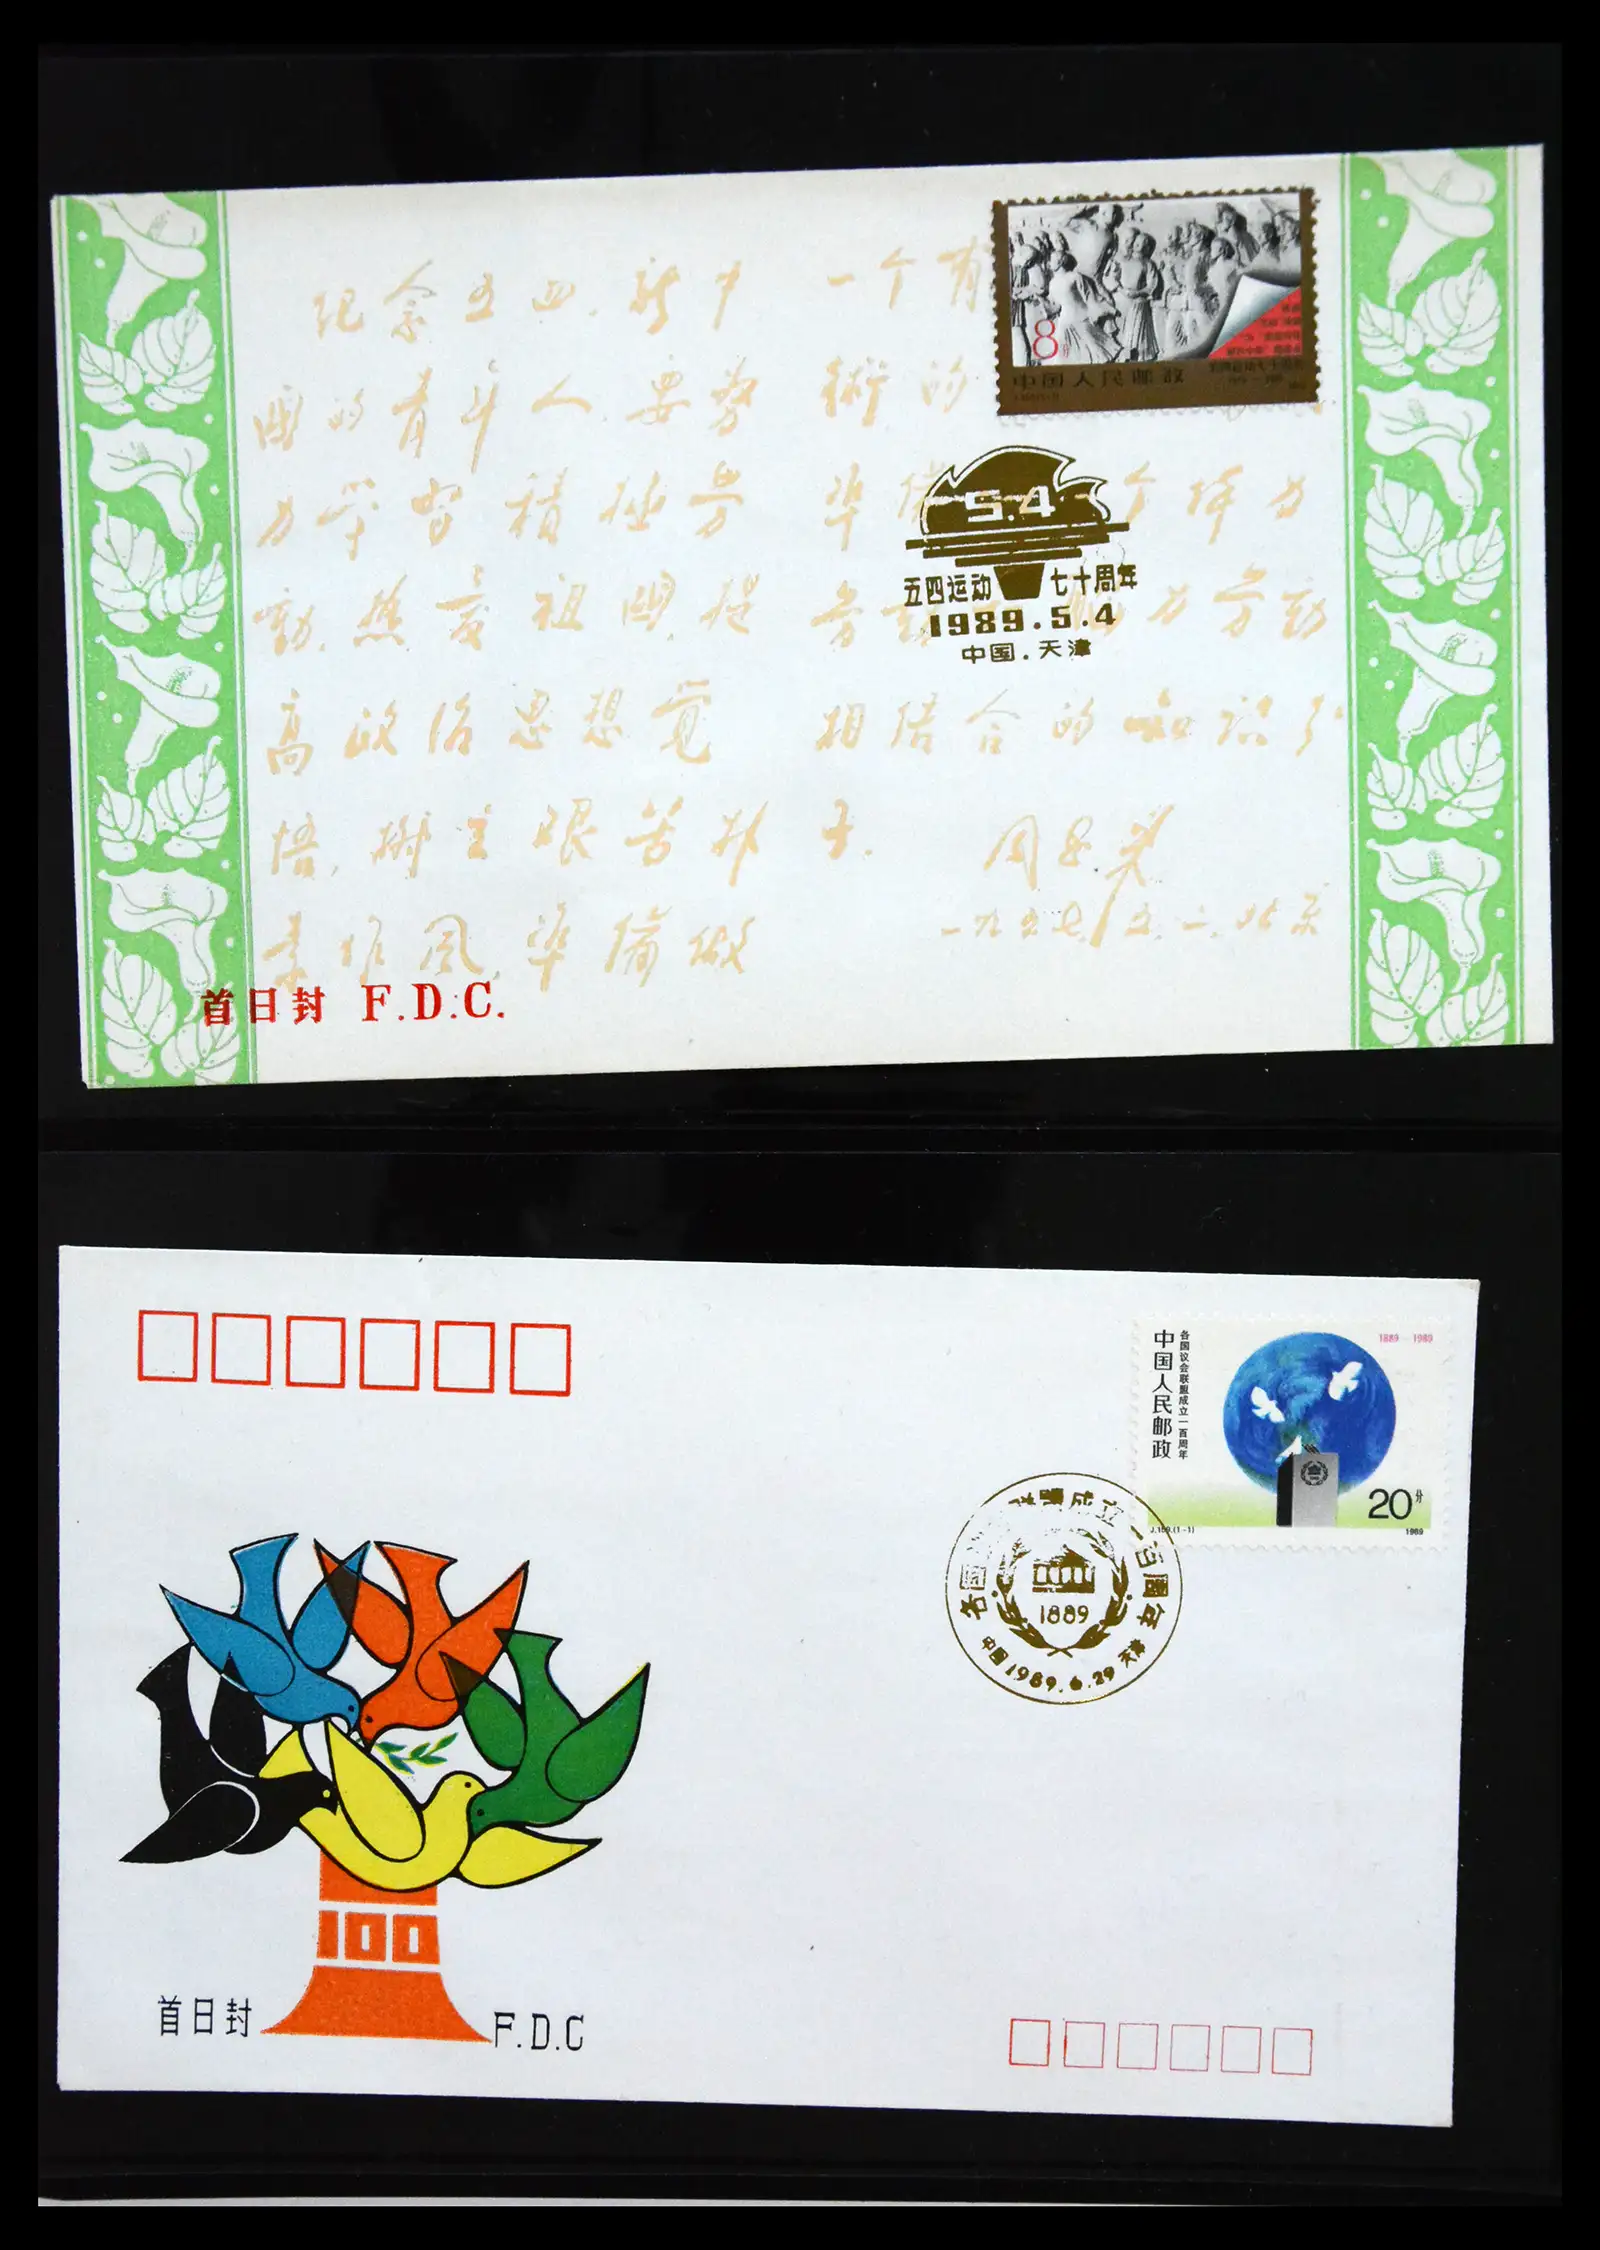 纪念五四，新中
國的青年人，要努
力学习，積極劳
動，热爱祖國，提
高政治思想覺
悟，樹立艰苦朴
素作风，準备做
一个有
術的
华
个体力
劳
力劳动
相结合的知识分
子。
周恩来
一九五七，五，二，北京
8分
中国人民邮政
5.4
五四运动 七十周年
1989.5.4
中国.天津
首日封 F.D.C.
1889-1989
各国议会联盟成立一百周年
中国人民邮政
20分
J.159.(1-1)
1989
各国议会联盟成立一百周年
1889
中国 1989.6.29 天津
100
首日封 F.D.C